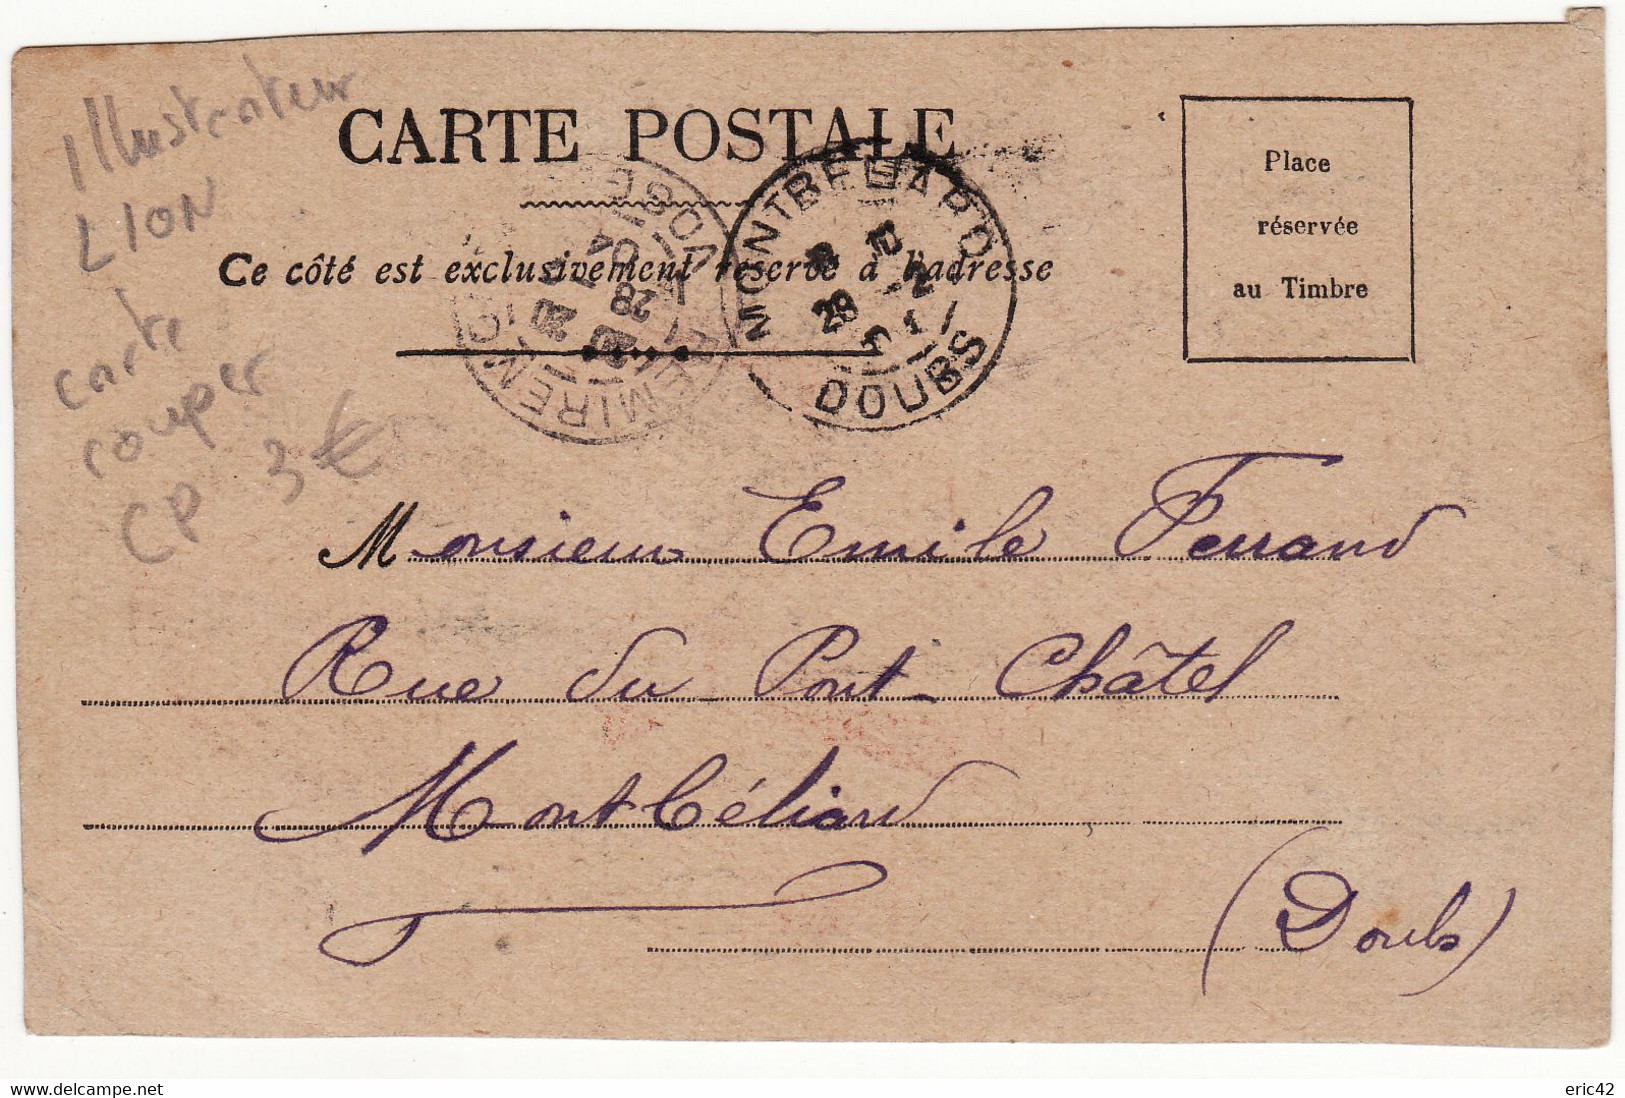 Illustrateur
LION
carte
couper
CP 3€
CARTE POSTALE
Ce côté est exclusivement réservé à l'adresse
Place
réservée
au Timbre
MONTBELIARD
DOUBS
REMIREMONT
VOSGES
28
04
Monsieur Emile Ferrand
Rue du Pont-Châtel
Montbéliard
(Doubs)
eric42